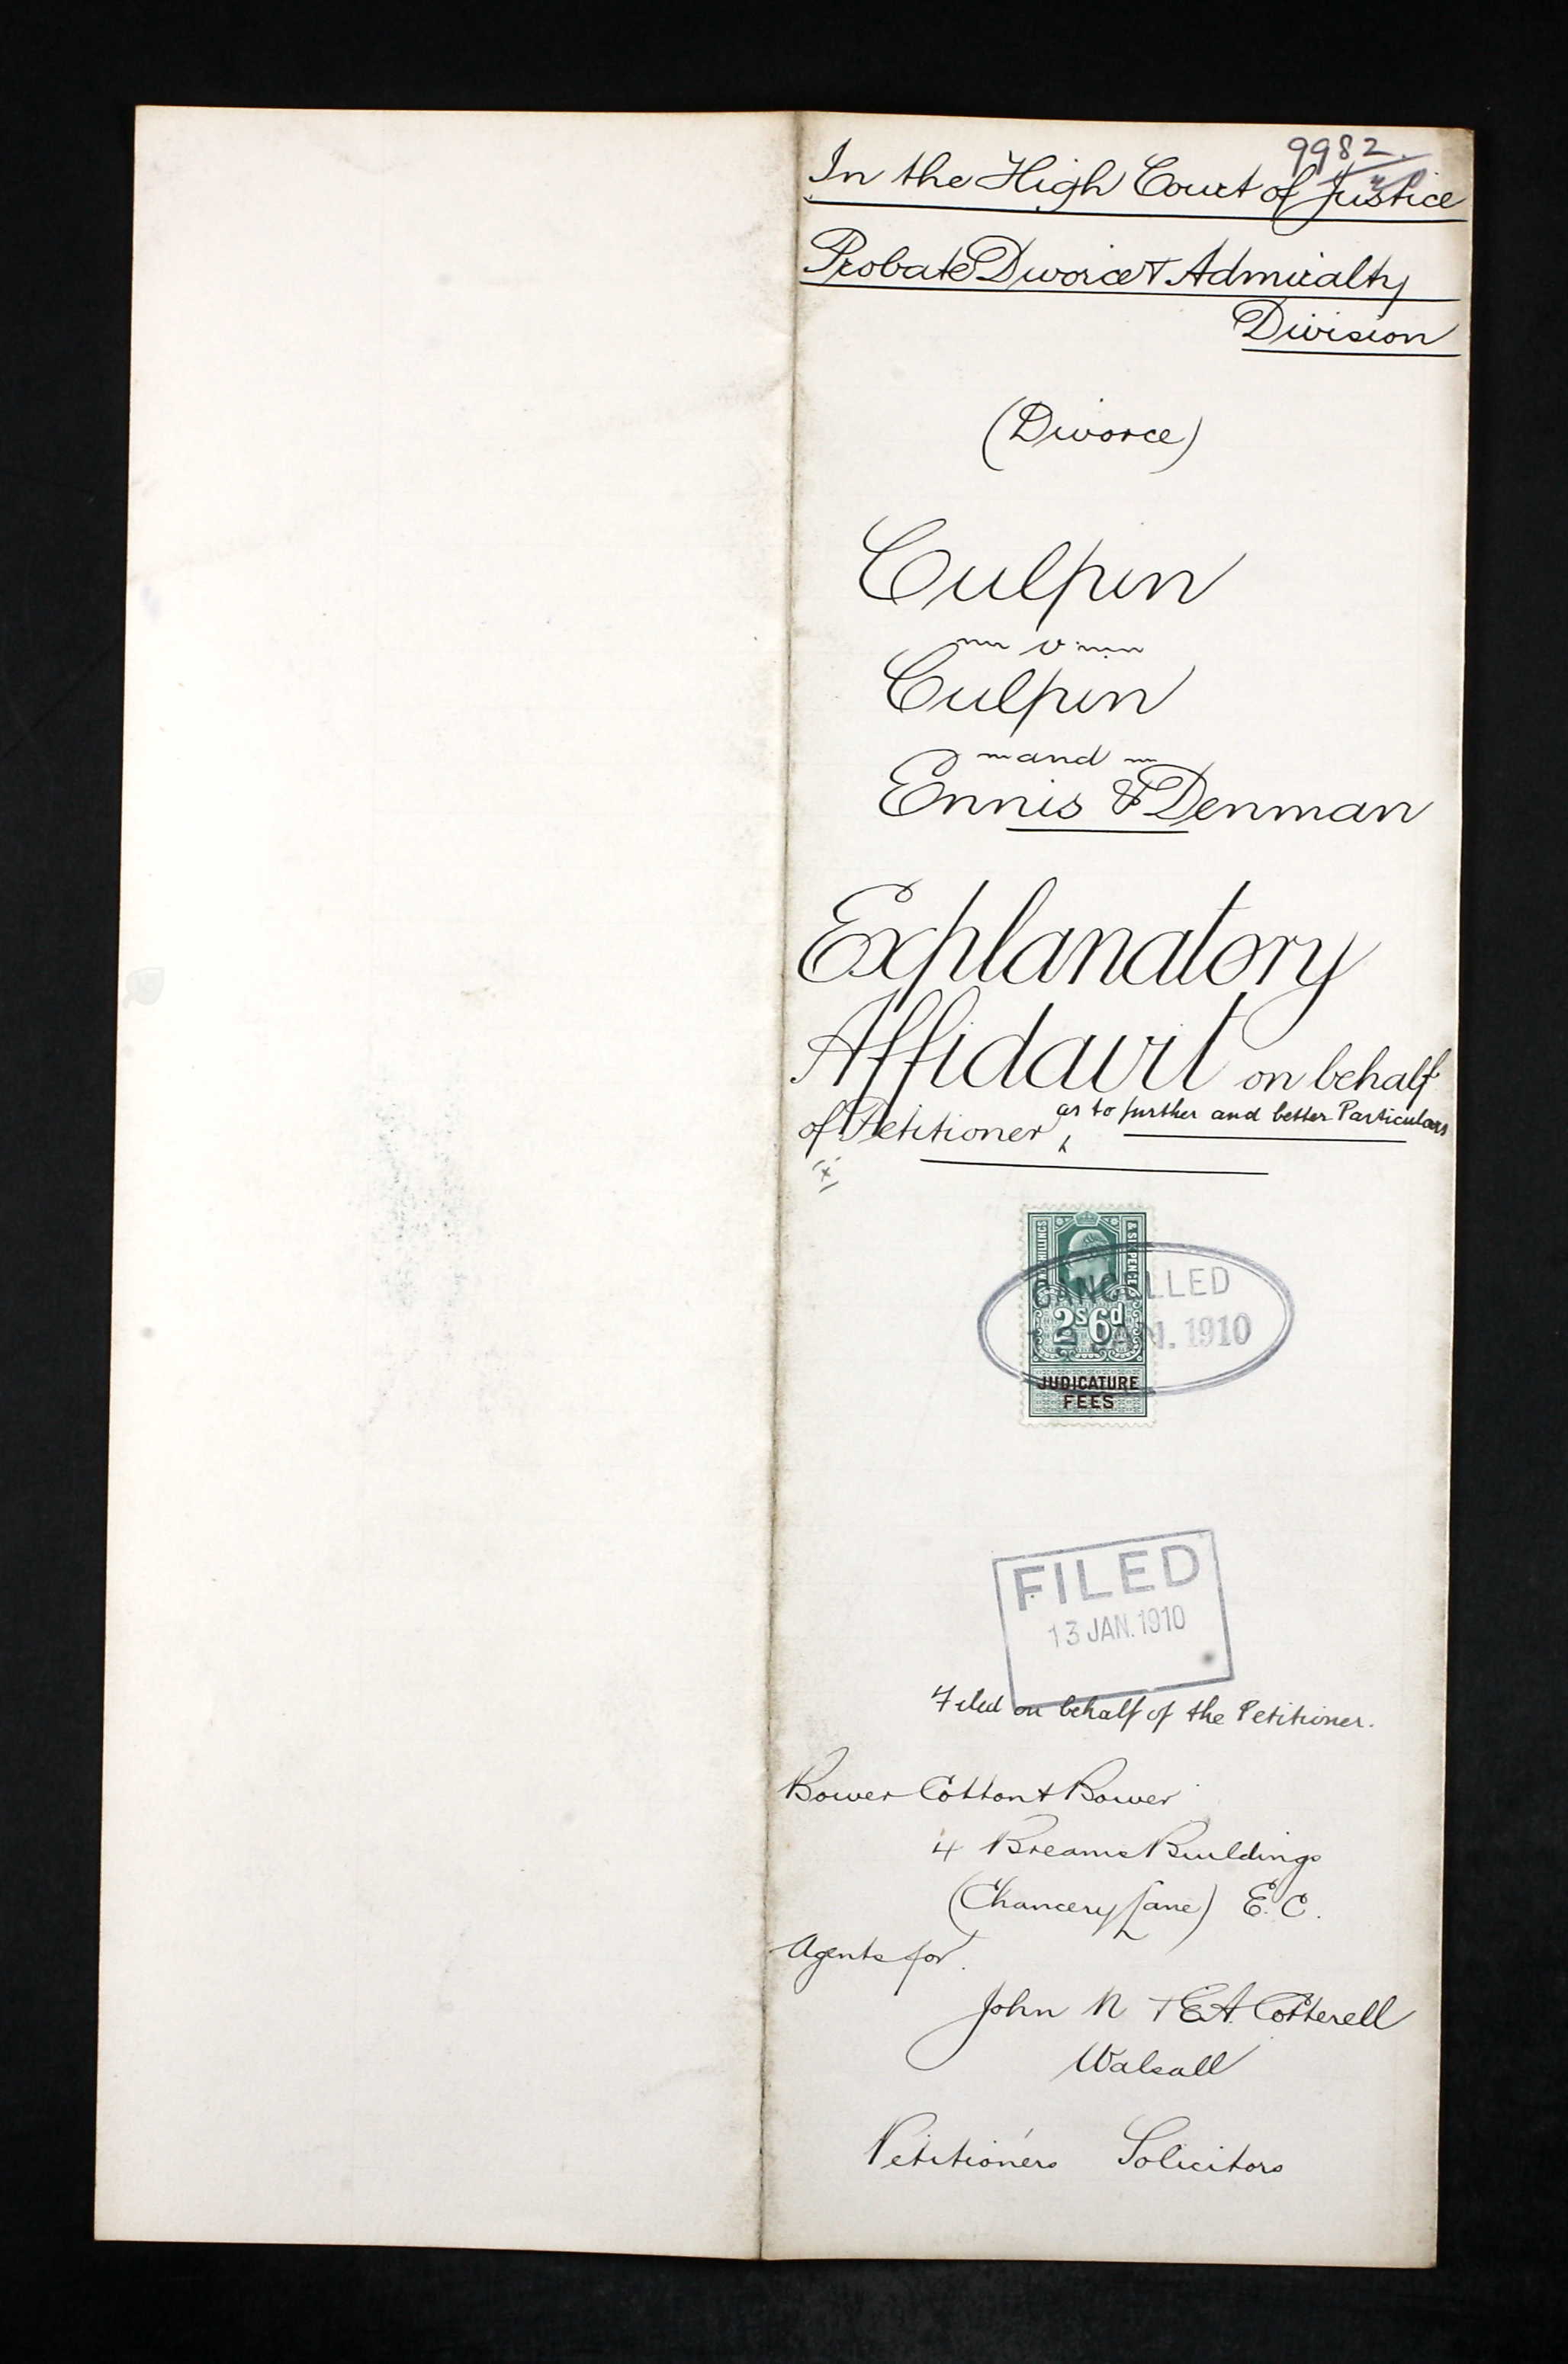 9982.
In the High Court of Justice
Probate Divorce & Admiralty
Division
(Divorce)
Culpin
v
Culpin
and
Ennis & Denman
Explanatory
Affidavit on behalf
of Petitioner as to further and better Particulars
(x)
& SIXPENCE
2s6d
JUDICATURE
FEES
CANCELLED
JAN. 1910
FILED
13 JAN. 1910
Filed on behalf of the Petitioner.
Bower Cotton & Bower
4 Breams Buildings
(Chancery Lane) E.C.
Agents for
John N & E.A. Cotterell
Walsall
Petitioners Solicitors